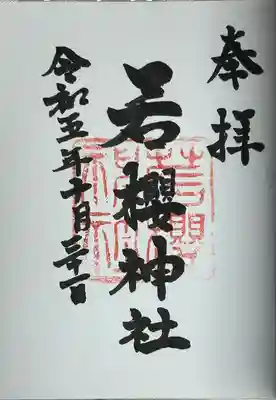 奉拝
若櫻神社
令和五年十月二十一日